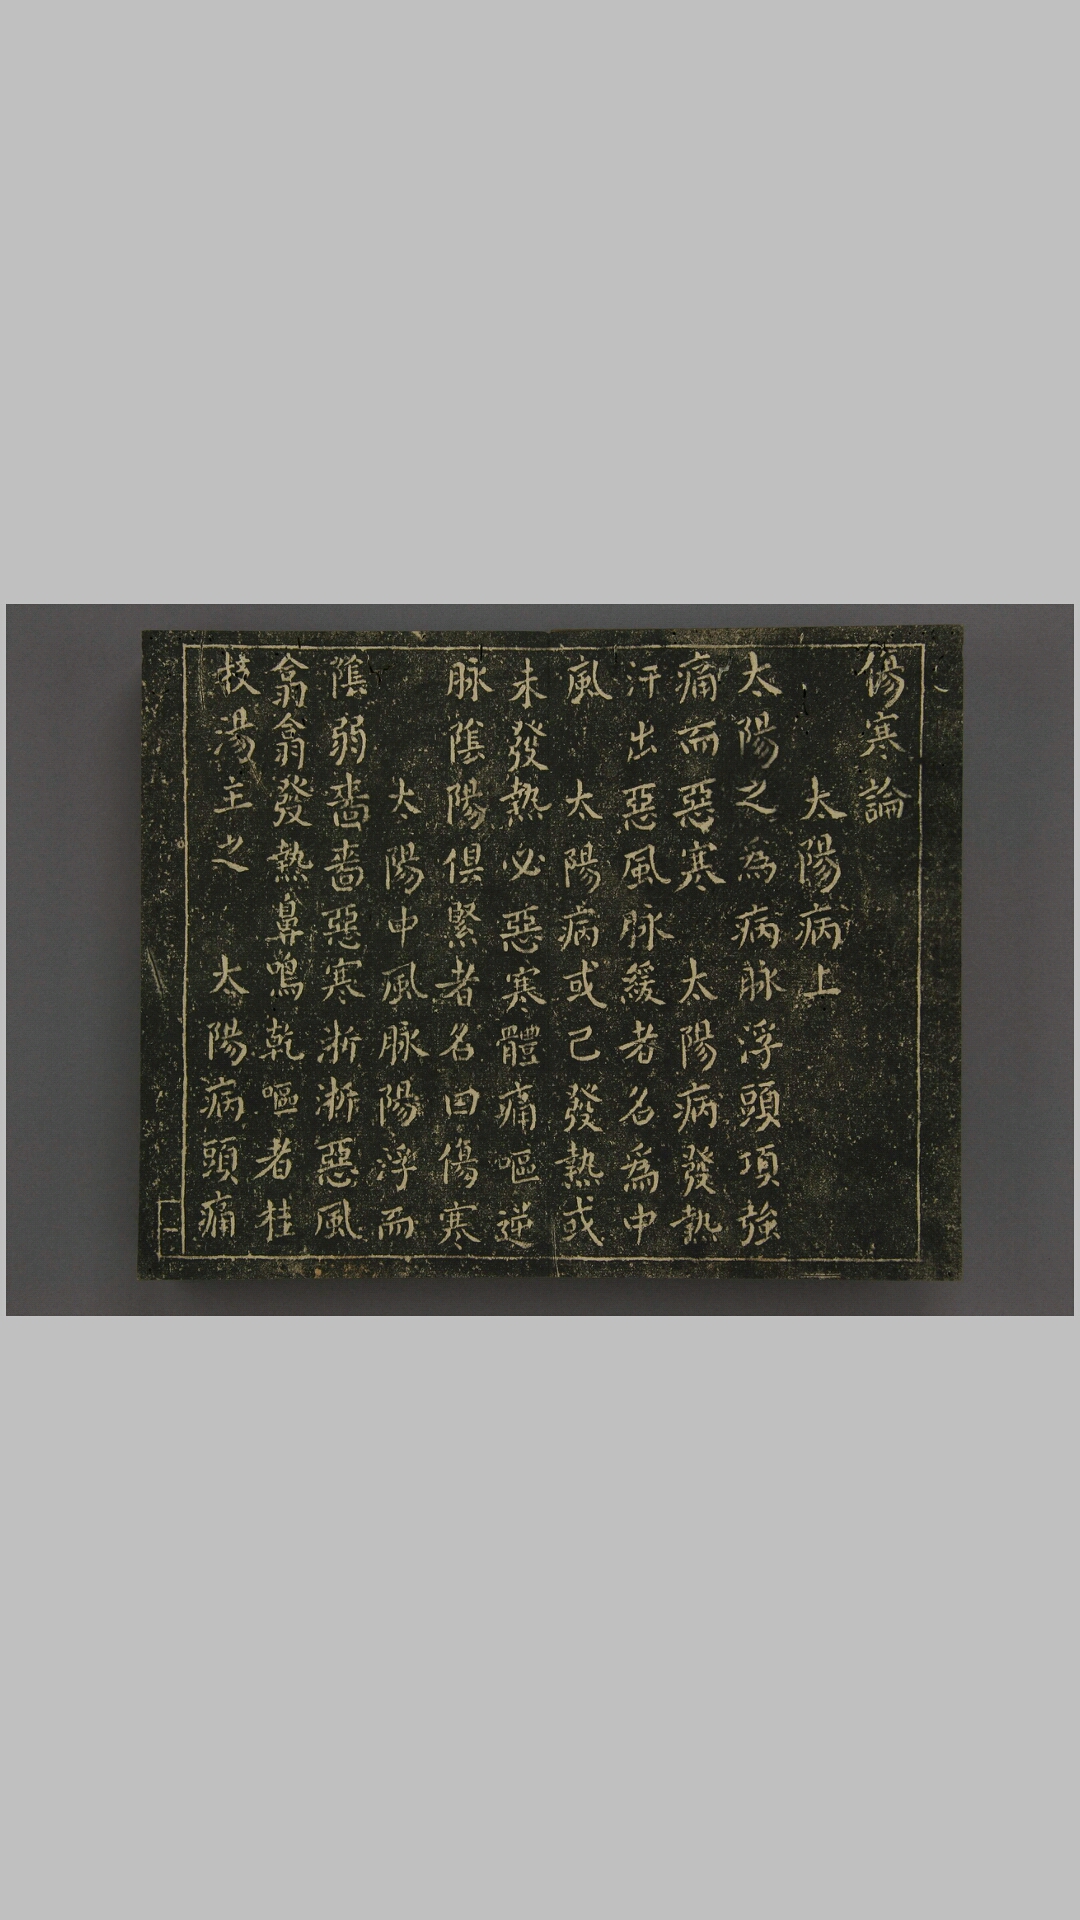 傷寒論
太陽病上
太陽之為病脉浮頭項強
痛而惡寒　太陽病發熱
汗出惡風脉緩者名為中
風　太陽病或已發熱或
未發熱必惡寒體痛嘔逆
脉陰陽俱緊者名曰傷寒
太陽中風脉陽浮而
陰弱嗇嗇惡寒淅淅惡風
翕翕發熱鼻鳴乾嘔者桂
枝湯主之　太陽病頭痛